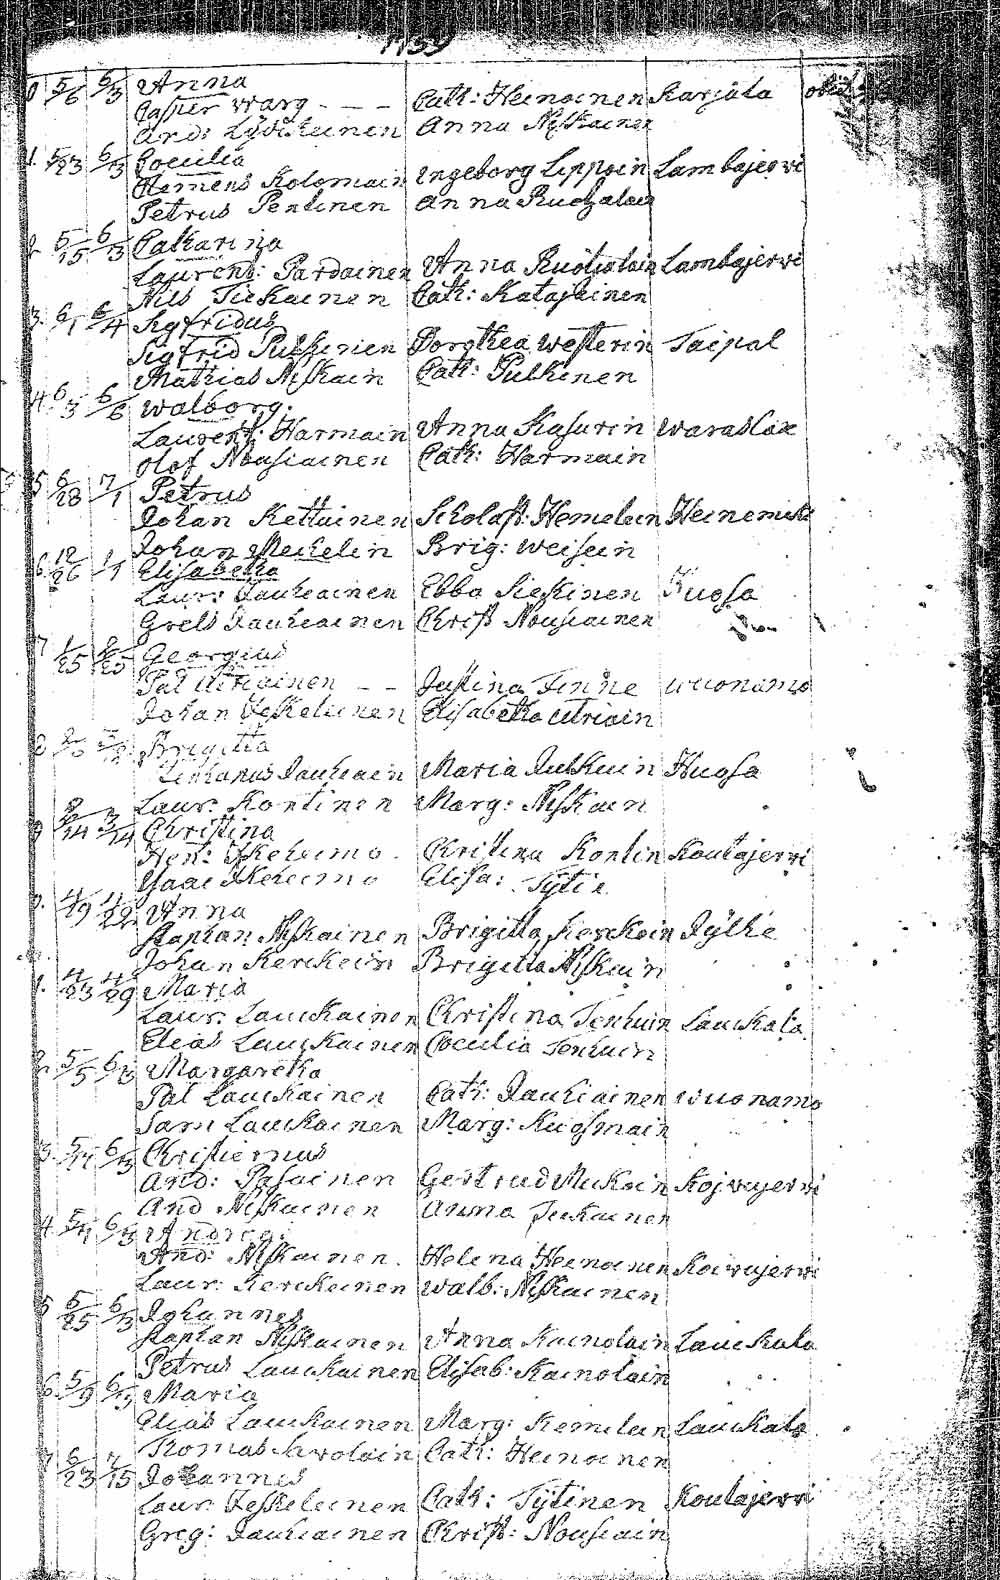 1739
0 5/6 6/3 Anna
Casper Warg - - - Cath: Heinoinen Karjala obiit
And: Lyötikeinen Anna Niskainen
1. 5/23 6/3 Coecilia
Hemens Kolomain Ingeborg Lippoin Lambajerwi
Petrus Pentinen Anna Ruotzalain
2 5/15 6/3 Catharina
Laurent: Pardainen Anna Ruotzalain Lambajerwi
Nils Tiekainen Cath: Katajainen
3. 6/1 6/4 Sigfridus
Sigfrid Pulkinen Dorothea Westerin Taipal
Mathias Niskain Cath: Pulkinen
4. 6/3 6/6 Walborg.
Laurent: Harmain Anna Kasurin Waraslax
Olof Nousiainen Cath: Harmain
5 6/28 7/1 Petrus
Johan Kettuinen Scholast: Hemelein Heinemeke
Johan Meikelein Brig: Weisein
6. 12/26 1/1 Elisabetha
Laur: Jauhiainen Ebba Sieskinen Kuosa
Grels Jauhiainen Christ Nousiainen
7 1/25 2/25 Georgius
Pal Utriainen - - Justina Finne Wuonamo
Johan Jeskeleinen Elisabetha Utriain
Brigitta
Jauhiain Maria Julkuin Kuosa
Laur: Kontinen Marg: Niskain
9 2/14 3/14 Christina
Hen: Ikeheimo. Christina Kontin Koutajerwi
Isaac Ikeheimo Elisa: Tytin
0. 4/19 4/22 Anna
Staphan Niskainen Brigitta Kerckein Jylhe
Johan Kerckein Brigitta Niskain
1. 4/23 4/29 Maria
Laur: Lauckainen Christina Tenhuin Lauckala
Elias Lauckainen Coecilia Tenhuin
2 5/5 6/3 Margaretha
Pal Lauckainen Cath: Jauhiainen Wuonamo
Lars Lauckainen Marg: Kuosmain
3. 5/11 6/3 Christiernus
And: Pasainen Gertrud Muckoin Kojwujerwi
And Niskainen Anna Tiekainen
4 5/11 6/3 Andreas
And: Niskainen. Helena Heinoinen Koiwujerwi
Laur: Kerckeinen Walb: Niskainen
5 5/25 6/3 Johannes
Staphan Niskainen Anna Kainolain Lauckala
Petrus Lauckainen Elisab: Kainolain
6. 5/9 6/3 Maria
Elias Lauckainen Marg: Kemilein Lauckala
Thomas Sawolain Cath: Heinoinen
7 6/23 7/15 Johannes
Laur: Jeskeleinen Cath: Tÿtinen Koutajerwi
Greg: Jauhiainen Christ: Nousiain